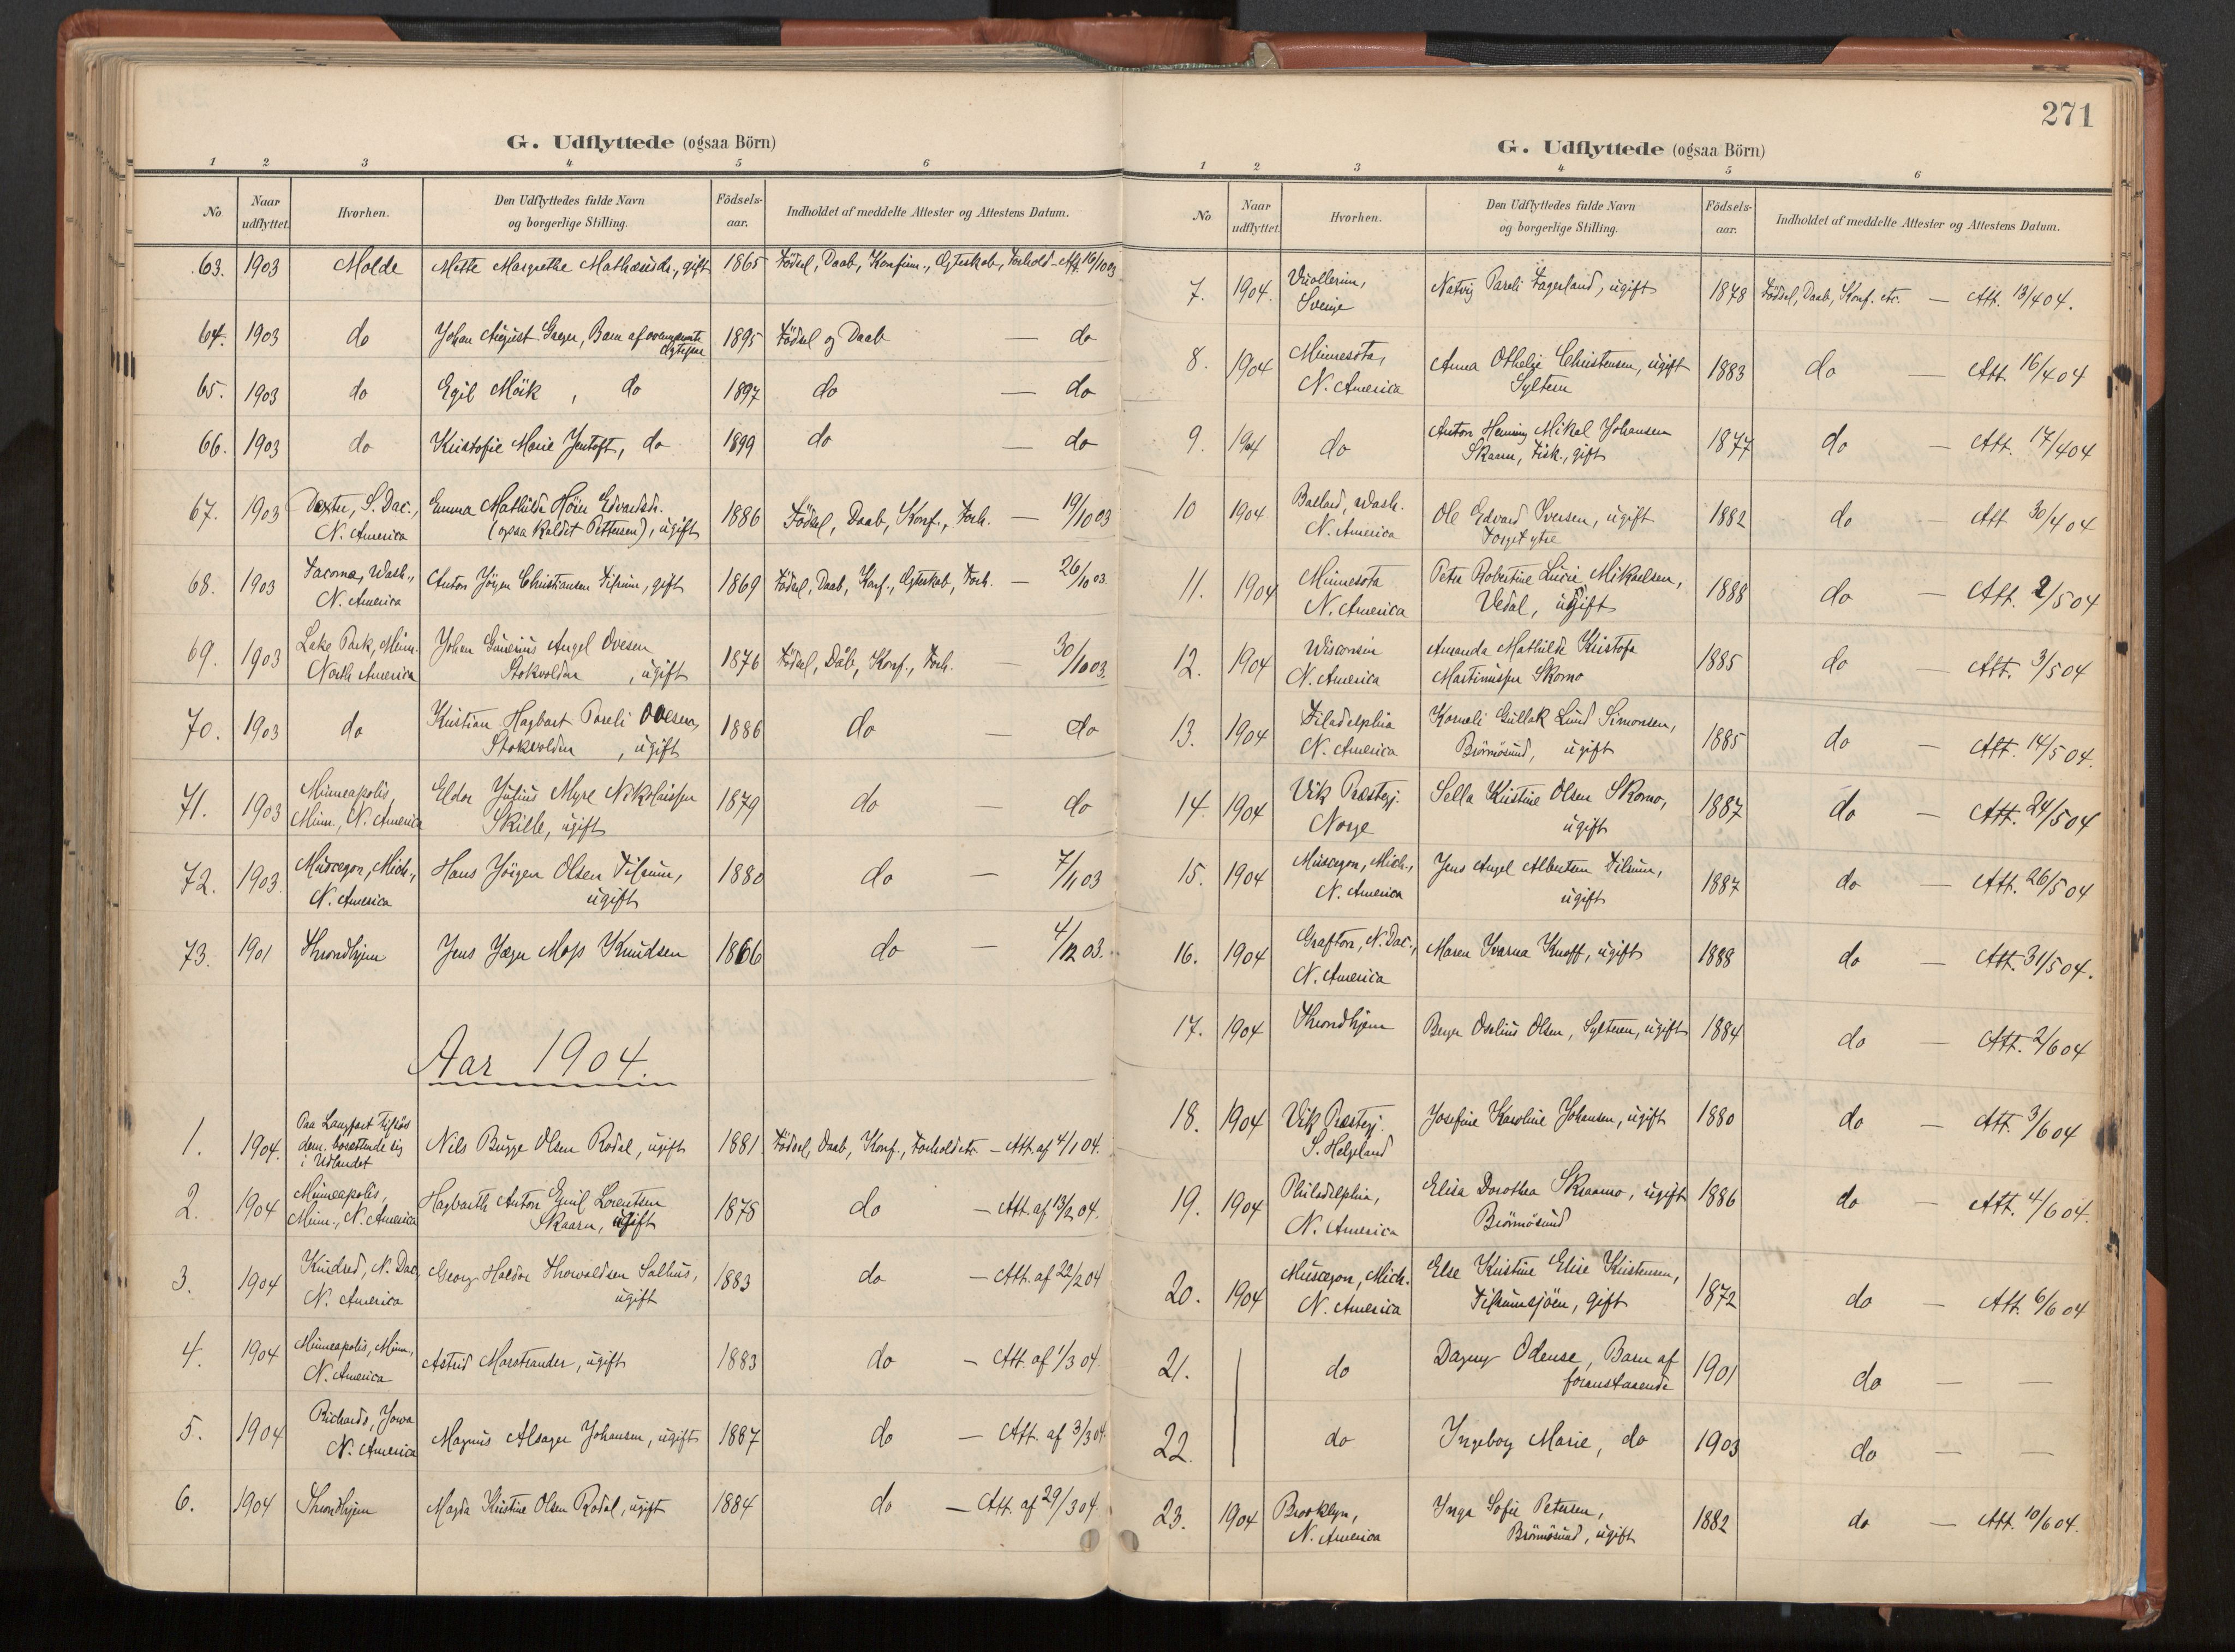 G. Udflyttede (ogsaa Börn)
1 2 3 4 5 6
No Naar udflyttet. Hvorhen. Den Udflyttedes fulde Navn og borgerlige Stilling. Födsels-aar. Indholdet af meddelte Attester og Attestens Datum.
63. 1903 Molde Mette Margrethe Mathæusdr., gift 1865 Födsel, Daab, Konfirm., Ægteskab, Forhold - Att. 16/10 03
64. 1903 do Johan August Jæger, Barn af ovennævnte 1895 Födsel og Daab — do
65. 1903 do Egil Mörk, do 1897 do — do
66. 1903 do Kristofie Marie Jentoft, do 1899 do — do
67. 1903 Dexter, S. Dac., Emma Mathilde Höier Edvardsdr. 1886 Födsel, Daab, Konf., Forh. — 19/10 03
N. America (ogsaa kaldet Pettersen), ugift
68. 1903 Tacoma, Wash., Anton Jörgen Christiansen Tilrum, gift 1869 Födsel, Daab, Konf., Ægteskab, Forh. — 26/10 03.
N. America
69. 1903 Lake Park, Minn. Johan Gunerius Angel Ovesen 1876 Födsel, Dåb, Konf., Forh. — 30/10 03.
North America Stokvolden, ugift
70. 1903 do Kristian Hagbart Pareli Ovesen, 1886 do — do
Stokvolden, ugift
71. 1903 Minneapolis, Eldor Julius Myre Nikolaissen 1879 do — do
Minn., N. America Skille, ugift
72. 1903. Muscegon, Mich., Hans Jörgen Olsen Tilrum, 1880 do — 7/11 03
N. America ugift
73. 1901 Throndhjem Jens Jæger Moss Knudsen 1866 do — 4/12 03.
Aar 1904.
1. 1904. Paa Langfart tilsøs Nils Bugge Olsen Rodal, ugift 1881 Födsel, Daab, Konf., Forhold etc. — Att. af 4/1 04.
dem. bosættende sig
i Udlandet
2. 1904 Minneapolis, Hagbarth Anton Emil Lorentsen 1878 do — Att. af 13/2 04.
Minn., N. America Skaarn, ugift
3. 1904 Kindred, N. Dac. Georg Haldor Thorvaldsen Salhus, 1883 do — Att. af 22/2 04
N. America ugift
4. 1904 Minneapolis, Minn., Astrid Marstrander, ugift 1883 do — Att. af 1/3 04.
N. America
5. 1904 Richards, Jowa Magnus Alsager Johansen, ugift 1887 do — Att. af 3/3 04.
N. America
6. 1904 Throndhjem Magda Kristine Olsen Rodal, ugift 1884 do — Att. af 29/3 04.
271
G. Udflyttede (ogsaa Börn)
1 2 3 4 5 6
No Naar udflyttet Hvorhen. Den Udflyttedes fulde Navn og borgerlige Stilling. Födsels-aar. Indholdet af meddelte Attester og Attestens Datum.
7. 1904. Vuollerim, Natvig Pareli Fagerland, ugift 1878 Födsel, Daab, Konf. etc. — Att. 13/4 04.
Sverige
8. 1904 Minnesota, Anna Othelie Christensen, ugift 1883 do — Att. 16/4 04
N. America Syltern
9. 1904 do Anton Henning Mikal Johansen 1877 do — Att. 17/4 04
Skaarn, Fisk., gift
10 1904 Ballard, Wash. Ole Edvard Iversen, ugift 1882 do — Att 30/4 04
N. America Torget ytre
11. 1904 Minnesota Petra Robertine Lucie Mikaelsen, 1888 do — Att. 2/5 04
N. America Vedal, ugift
12. 1904 Wisconsin Amanda Mathilde Kristofa 1885 do — Att. 3/5 04
N. America Martinussen Skomo
13. 1904 Filadelphia Korneli Gullak Lund Simonsen, 1885 do — Att. 14/5 04.
N. America Brönnösund, ugift
14 1904 Vik Præstegj. Sella Kristine Olsen Skomo, 1887 do — Att. 24/5 04
Norge ugift
15. 1904 Muscegon, Mich., Jens Angel Albertsen Tilrum, 1887 do — Att. 26/5 04
N. America ugift
16. 1904 Grafton, N. Dac., Maren Ivarna Knoff, ugift 1888 do — Att. 31/5 04.
N. America
17. 1904 Throndhjem Berger Oselius Olsen, Syltern, ugift 1884 do — Att. 2/6 04
18. 1904 Vik Præstegj. Josefine Karoline Johansen, ugift 1880 do — Att. 3/6 04
S. Helgeland
19. 1904 Philadelphia, Elisa Dorothea Skraamo, ugift 1886 do — Att. 4/6 04.
N. America Brönnösund
20. 1904 Muscegon, Mich. Else Kristine Elise Kristensen, 1872 do — Att. 6/6 04
N. America Tilrumsjöen, gift
21. do Dagny Odense, Barn af 1901 do — —
foranstaaende
22. do Ingeborg Marie, do 1903 do — —
23. 1904 Brooklyn, Inga Sofie Petersen, 1882 do — Att. 10/6 04.
N. America Brönnösund, ugift